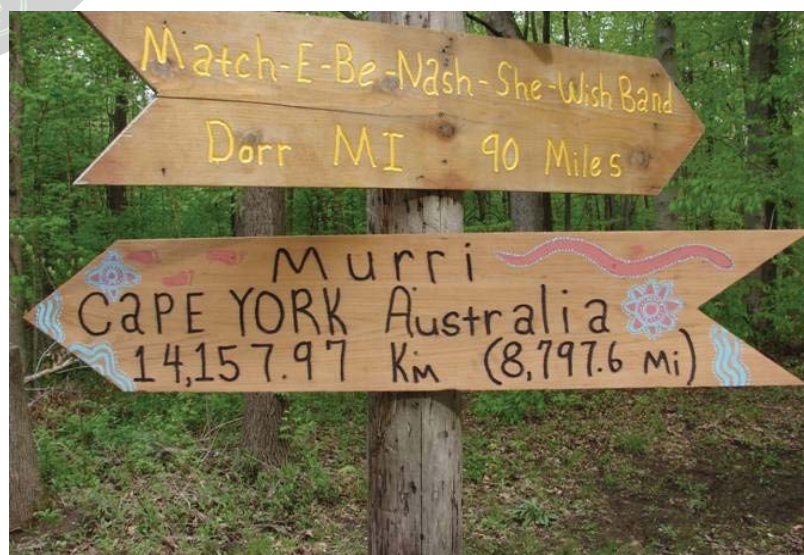 Match-E-Be-Nash-She-Wish Band
Dorr MI 90 Miles
Murri
CAPE YORK Australia
14,157.97 Km (8,797.6 mi)